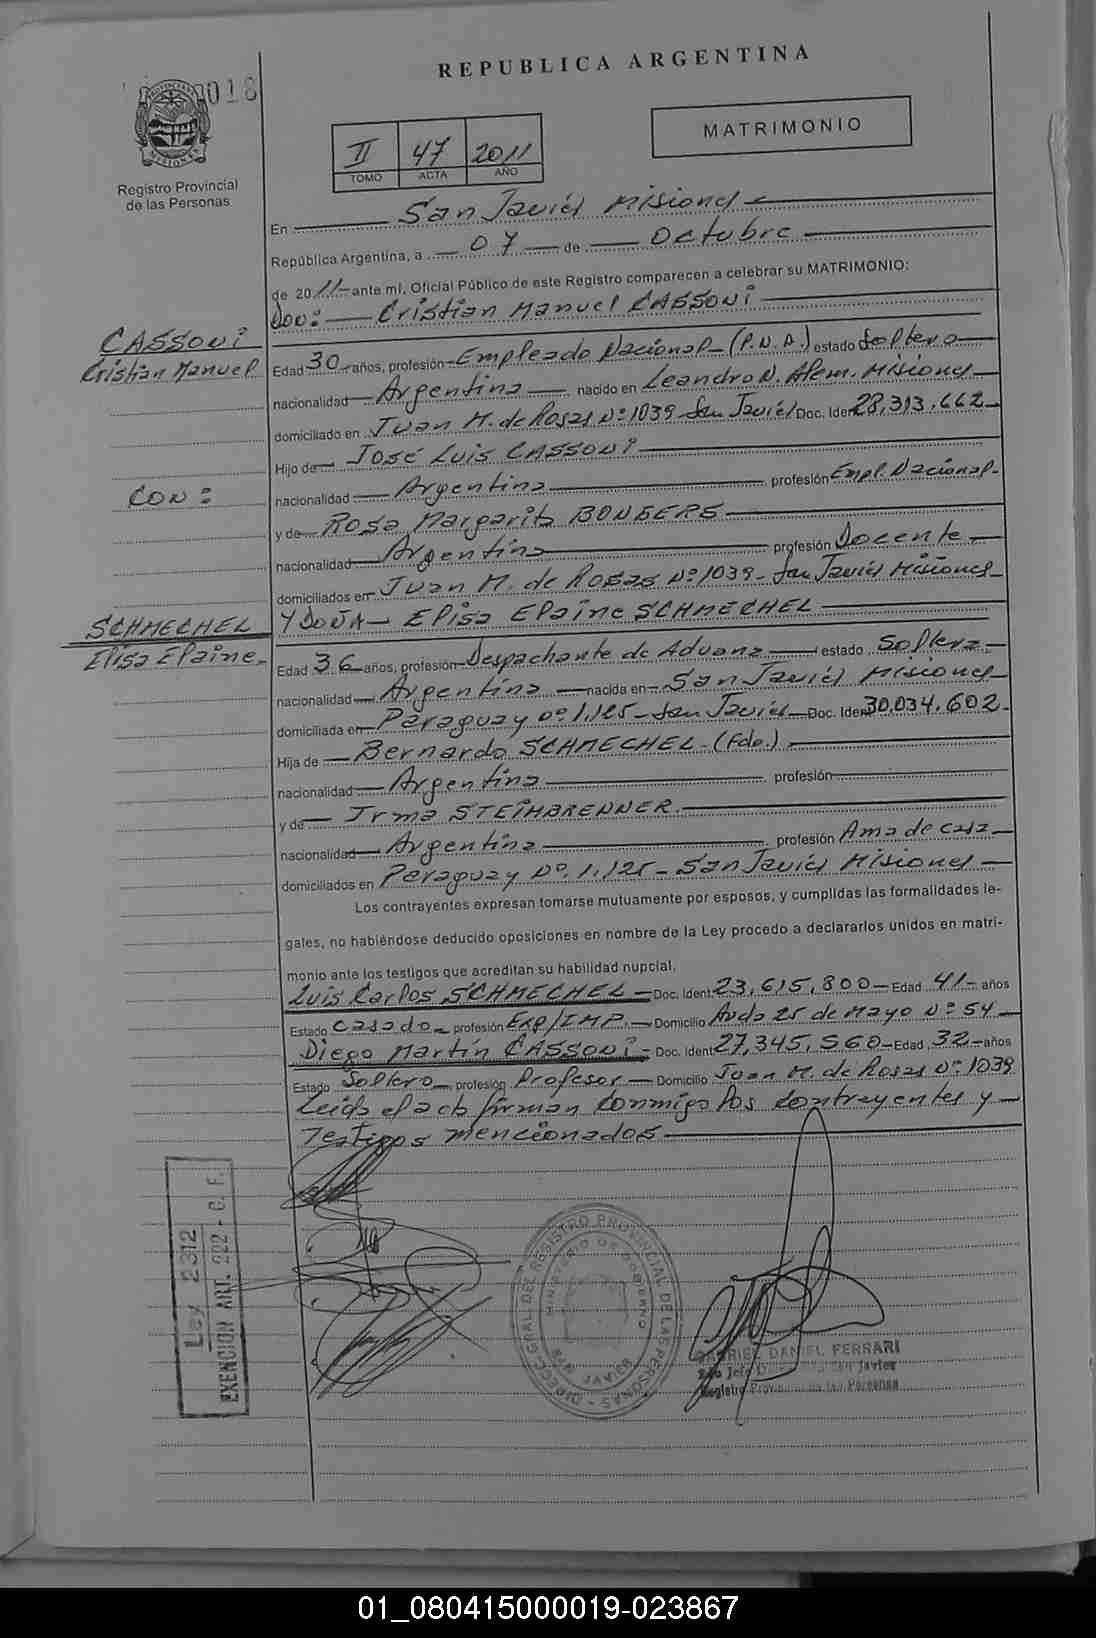 018
REPUBLICA ARGENTINA
PROVINCIA
MISIONES
Registro Provincial
de las Personas
II 47 2011
TOMO ACTA AÑO
MATRIMONIO
En San Javier Misiones
República Argentina, a 07 de Octubre
de 2011 ante mí, Oficial Público de este Registro comparecen a celebrar su MATRIMONIO:
Don: Cristian Manuel CASSONI
CASSONI
Cristian Manuel
Edad 30 años, profesión Empleado Nacional (P.N.A.) estado Soltero
nacionalidad Argentina nacido en Leandro N. Alem. Misiones
domiciliado en Juan M. de Rosas Nº 1039 San Javier Doc. Ident 28.313.662
Hijo de José Luis CASSONI
CON:
nacionalidad Argentina profesión Empl. Nacional
y de Rosa Margarita BONGERS
nacionalidad Argentina profesión Docente
domiciliados en Juan M. de Rosas Nº 1039 San Javier Misiones
Y DOÑA Elisa Elaine SCHMECHEL
SCHMECHEL
Elisa Elaine
Edad 36 años, profesión Despachante de Aduana estado Soltera
nacionalidad Argentina nacida en San Javier Misiones
domiciliada en Paraguay nº 1.125 San Javier Doc. Ident 30.034.602
Hija de Bernardo SCHMECHEL (Fdo.)
nacionalidad Argentina profesión
y de Irma STEIHBRENNER.
nacionalidad Argentina profesión Ama de casa
domiciliados en Paraguay Nº. 1.125 San Javier Misiones
Los contrayentes expresan tomarse mutuamente por esposos, y cumplidas las formalidades le-
gales, no habiéndose deducido oposiciones en nombre de la Ley procedo a declararlos unidos en matri-
monio ante los testigos que acreditan su habilidad nupcial.
Luis Carlos SCHMECHEL Doc. Ident 23.615.800 Edad 41 años
Estado Casado profesión EXP/IMP. Domicilio Avda 25 de Mayo Nº 54
Diego Martín CASSONI Doc. Ident 27.345.560 Edad 32 años
Estado Soltero profesión Profesor Domicilio Juan M. de Rosas Nº 1039
Leída el acta firman conmigo los contrayentes y
Testigos mencionados
Ley 2312
EXENCION ART. 222 - C. F.
DIRECC. GRAL. DEL REGISTRO PROVINCIAL DE LAS PERSONAS
MINISTERIO DE GOBIERNO
SAN JAVIER
GABRIEL DANIEL FERRARI
San Javier
Registro Personas
01_080415000019-023867